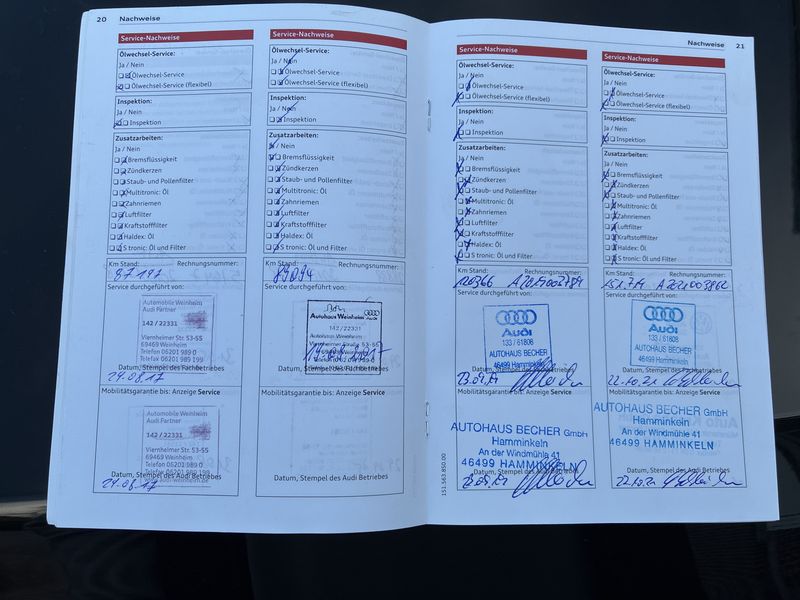 20 Nachweise
Service-Nachweise
Ölwechsel-Service:
Ja / Nein
Ölwechsel-Service
Ölwechsel-Service (flexibel)
Inspektion:
Ja / Nein
Inspektion
Zusatzarbeiten:
Ja / Nein
Bremsflüssigkeit
Zündkerzen
Staub- und Pollenfilter
Multitronic: Öl
Zahnriemen
Luftfilter
Kraftstofffilter
Haldex: Öl
S tronic: Öl und Filter
Km Stand: Rechnungsnummer:
87197
Service durchgeführt von:
Automobile Weinheim
Audi Partner
142 / 22331
Viernheimer Str. 53-55
69469 Weinheim
Telefon 06201 989 0
Telefax 06201 989 199
Datum, Stempel des Fachbetriebes
24.08.17
Mobilitätsgarantie bis: Anzeige Service
Automobile Weinheim
Audi Partner
142 / 22331
Viernheimer Str. 53-55
69469 Weinheim
Telefon 06201 989 0
Telefax 06201 989 199
Datum, Stempel des Audi Betriebes
24.08.17
Service-Nachweise
Ölwechsel-Service:
Ja / Nein
Ölwechsel-Service
Ölwechsel-Service (flexibel)
Inspektion:
Ja / Nein
Inspektion
Zusatzarbeiten:
Ja / Nein
Bremsflüssigkeit
Zündkerzen
Staub- und Pollenfilter
Multitronic: Öl
Zahnriemen
Luftfilter
Kraftstofffilter
Haldex: Öl
S tronic: Öl und Filter
Km Stand: Rechnungsnummer:
89094
Service durchgeführt von:
Autohaus Weinheim Audi
142 / 22331
Autohaus Weinheim
Datum, Stempel des Fachbetriebes
Mobilitätsgarantie bis: Anzeige Service
Datum, Stempel des Audi Betriebes
Nachweise 21
Service-Nachweise
Ölwechsel-Service:
Ja / Nein
Ölwechsel-Service
Ölwechsel-Service (flexibel)
Inspektion:
Ja / Nein
Inspektion
Zusatzarbeiten:
Ja / Nein
Bremsflüssigkeit
Zündkerzen
Staub- und Pollenfilter
Multitronic: Öl
Zahnriemen
Luftfilter
Kraftstofffilter
Haldex: Öl
S tronic: Öl und Filter
Km Stand: Rechnungsnummer:
120366
Service durchgeführt von:
Audi
133 / 61808
AUTOHAUS BECHER
46499 Hamminkeln
Datum, Stempel des Fachbetriebes
Mobilitätsgarantie bis: Anzeige Service
AUTOHAUS BECHER GmbH
Hamminkeln
An der Windmühle 41
46499 HAMMINKELN
Datum, Stempel des Audi Betriebes
151.563.850.00
Service-Nachweise
Ölwechsel-Service:
Ja / Nein
Ölwechsel-Service
Ölwechsel-Service (flexibel)
Inspektion:
Ja / Nein
Inspektion
Zusatzarbeiten:
Ja / Nein
Bremsflüssigkeit
Zündkerzen
Staub- und Pollenfilter
Multitronic: Öl
Zahnriemen
Luftfilter
Kraftstofffilter
Haldex: Öl
S tronic: Öl und Filter
Km Stand: Rechnungsnummer:
Service durchgeführt von:
Audi
133 / 61808
AUTOHAUS BECHER
46499 Hamminkeln
Datum, Stempel des Fachbetriebes
22.10.21
Mobilitätsgarantie bis: Anzeige Service
AUTOHAUS BECHER GmbH
Hamminkeln
An der Windmühle 41
46499 HAMMINKELN
Datum, Stempel des Audi Betriebes
22.10.21